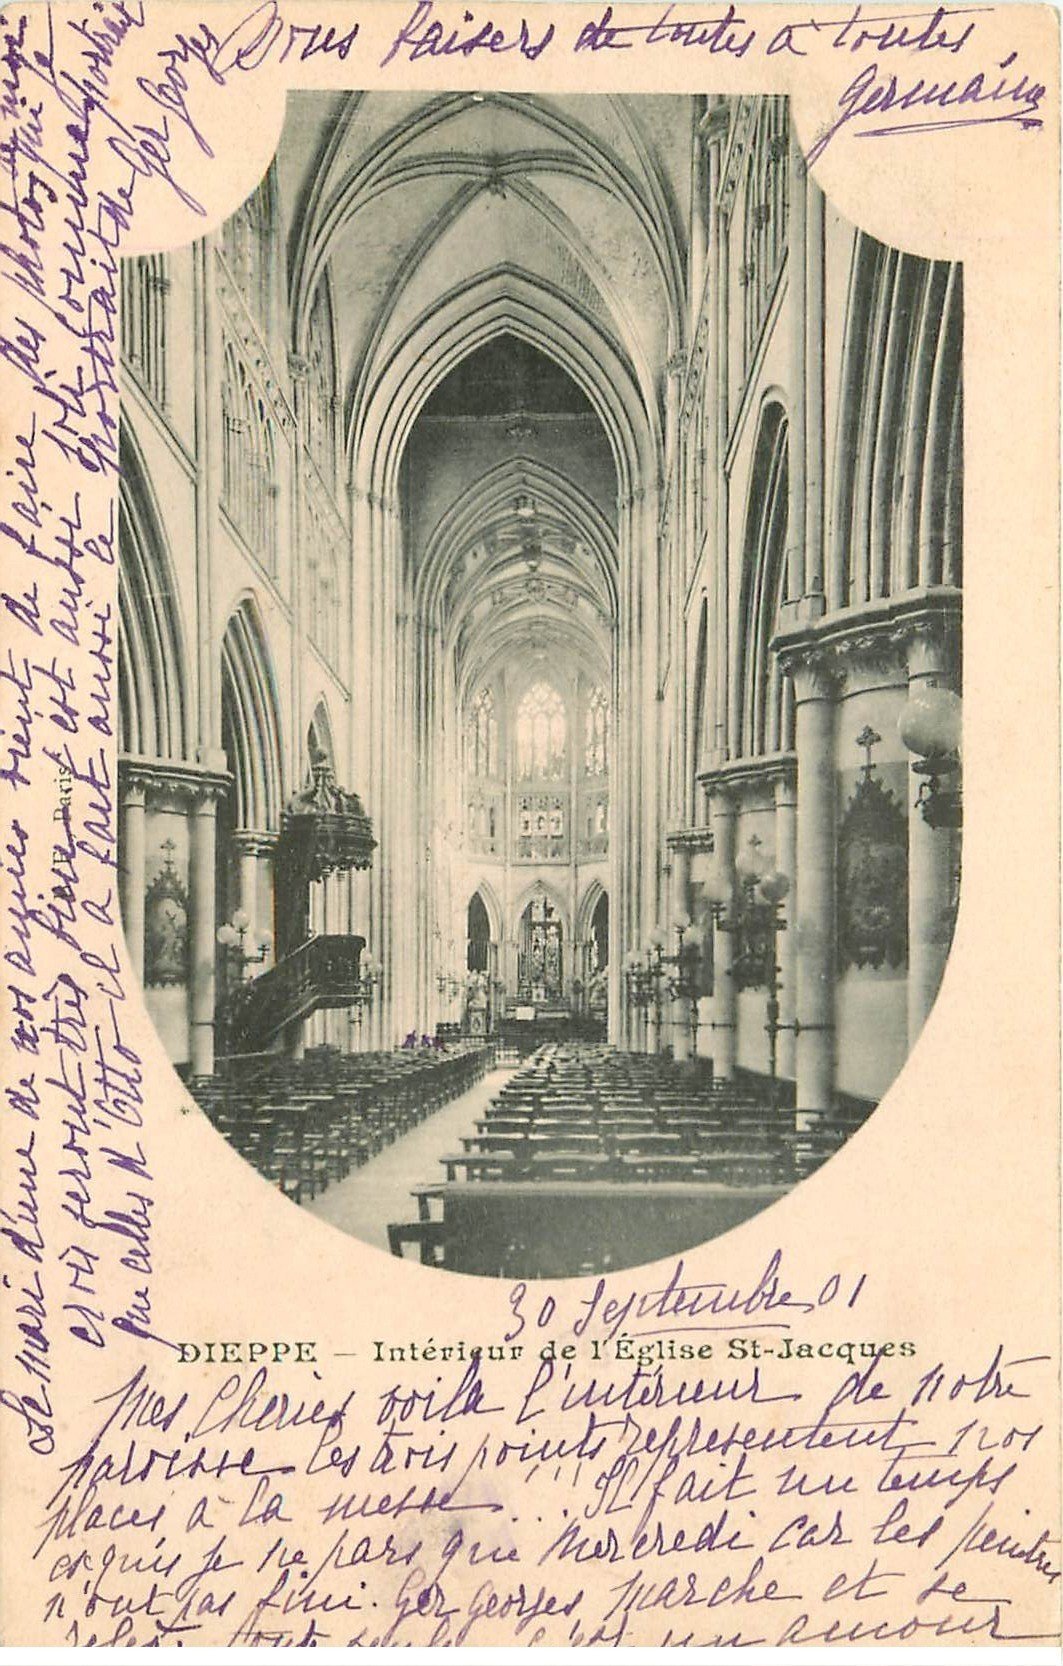 30 Septembre 01
DIEPPE – Intérieur de l'Église St-Jacques
Mes Cheries voila l'intérieur de notre
paroisse les trois points représentent nos
places à la messe ... Il fait un temps
exquis je ne pars que Mercredi car les peintres
n'ont pas fini. Ger Georges marche et se
toute seule c'est un amour
Le mari d'une de nos amies vient de faire des photos que je
crois seront très bien est aussi joli comme portrait
que celles d'Otto il a fait aussi le portrait de Ger Georges
Paris
Bons baisers de toutes à toutes
Germaine